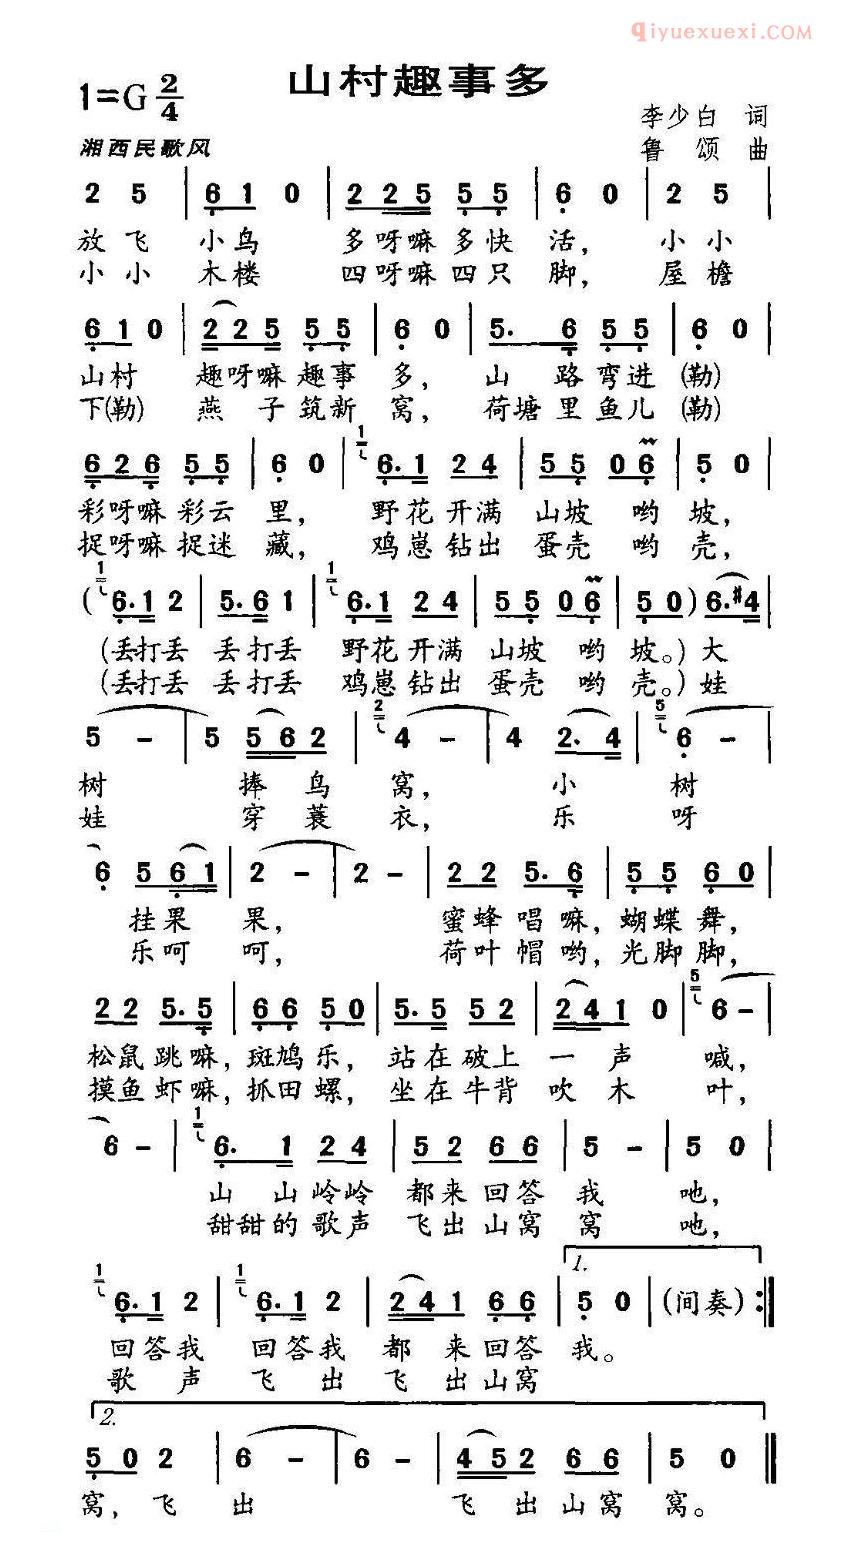 qiyuexuexi.COM
山村趣事多
1=G 2/4
李少白 词
湘西民歌风
鲁 颂 曲
2 5 | 6 1 0 | 2 2 5 5 5 | 6 0 | 2 5 |
放飞 小鸟 多呀嘛多快 活， 小小
小小 木楼 四呀嘛四只 脚， 屋檐
6 1 0 | 2 2 5 5 5 | 6 0 | 5. 6 5 5 | 6 0 |
山村 趣呀嘛趣事 多， 山 路弯进 (勒)
下(勒) 燕 子筑新 窝， 荷塘里鱼儿 (勒)
6 2 6 5 5 | 6 0 | 1 6. 1 2 4 | 5 5 0 6 | 5 0 |
彩呀嘛彩云 里， 野花开满 山坡 哟 坡，
捉呀嘛捉迷 藏， 鸡崽钻出 蛋壳 哟 壳，
( 1 6. 1 2 | 5. 6 1 | 1 6. 1 2 4 | 5 5 0 6 | 5 0 ) 6. #4 |
(丢打丢 丢打丢 野花开满 山坡 哟 坡。) 大
(丢打丢 丢打丢 鸡崽钻出 蛋壳 哟 壳。) 娃
5 - | 5 5 6 2 | 2 4 - | 4 2. 4 | 5 6 - |
树 捧鸟 窝， 小 树
娃 穿蓑 衣， 乐 呀
6 5 6 1 | 2 - | 2 - | 2 2 5. 6 | 5 5 6 0 |
挂果 果， 蜜蜂唱嘛，蝴蝶舞，
乐呵 呵， 荷叶帽哟，光脚脚，
2 2 5. 5 | 6 6 5 0 | 5. 5 5 2 | 2 4 1 0 | 5 6 - |
松鼠跳嘛，斑鸠乐， 站在破上 一 声 喊，
摸鱼虾嘛，抓田螺， 坐在牛背 吹 木 叶，
6 - | 1 6. 1 2 4 | 5 2 6 6 | 5 - | 5 0 |
山 山岭岭 都来回答 我 吔，
甜甜的歌声 飞出山窝 窝 吔，
1.
1 6. 1 2 | 1 6. 1 2 | 2 4 1 6 6 | 5 0 | (间奏) :||
回答我 回答我 都 来回答 我。
歌 声 飞 出 飞 出山窝
2.
5 0 2 | 6 - | 6 - | 4 5 2 6 6 | 5 0 ||
窝，飞 出 飞 出山窝 窝。